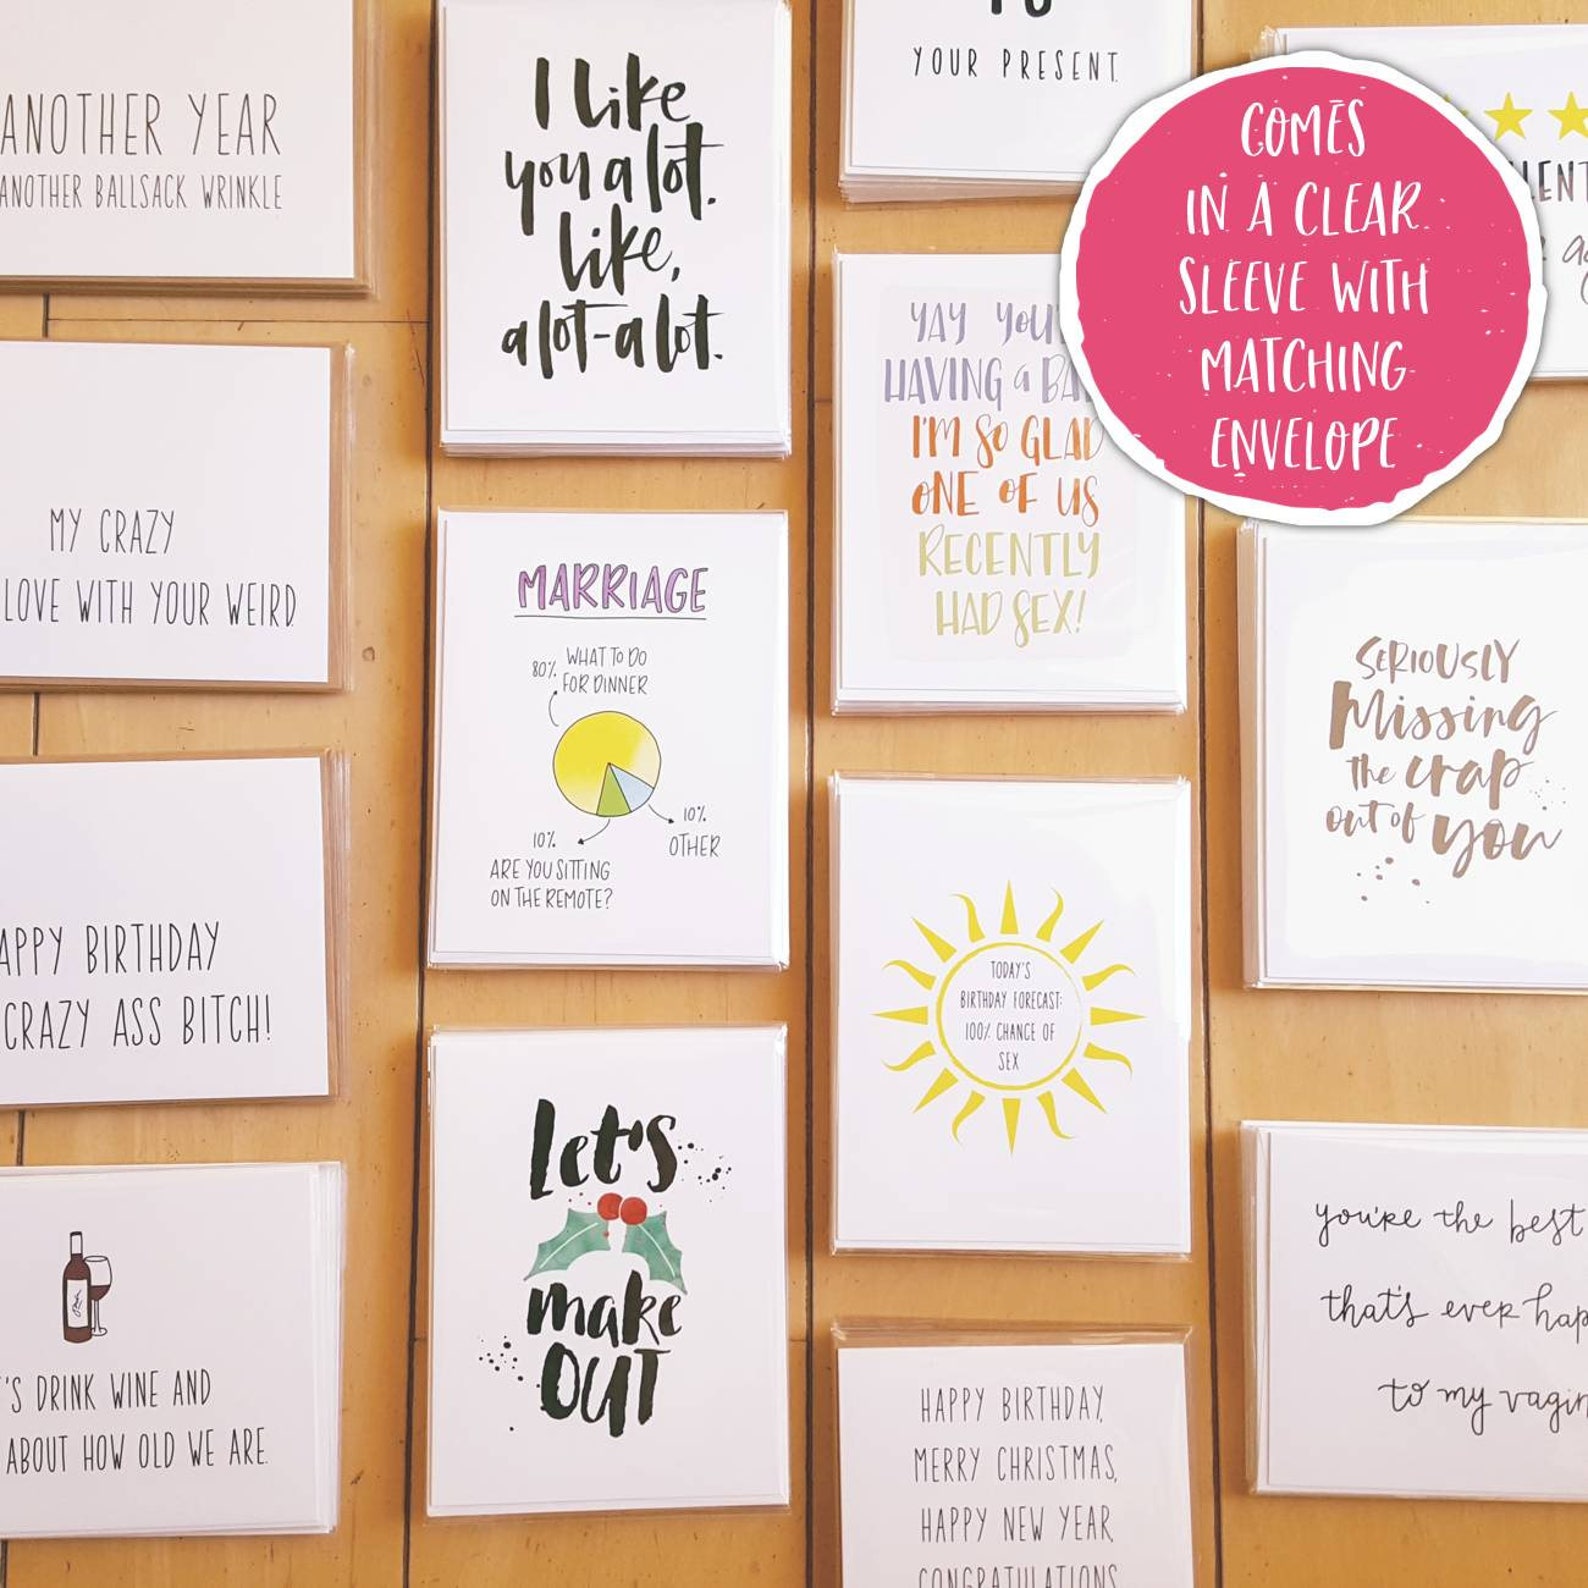 ANOTHER YEAR
ANOTHER BALLSACK WRINKLE
MY CRAZY
LOVE WITH YOUR WEIRD
BIRTHDAY
CRAZY ASS BITCH!
DRINK WINE AND
ABOUT HOW OLD WE ARE.
I like
you a lot.
like,
a lot-a lot.
MARRIAGE
80% WHAT TO DO
FOR DINNER
10%
OTHER
10%
ARE YOU SITTING
ON THE REMOTE?
Let's
make
OUT
YOUR PRESENT.
YAY
HAVING a
I'M SO GLAD
ONE OF US
RECENTLY
HAD SEX!
TODAY'S
BIRTHDAY FORECAST:
100% CHANCE OF
SEX
HAPPY BIRTHDAY,
MERRY CHRISTMAS,
HAPPY NEW YEAR,
CONGRATULATIONS
COMES
IN A CLEAR
SLEEVE WITH
MATCHING
ENVELOPE
SERIOUSLY
Missing
the crap
out of
you
you're the best
that's ever
to my